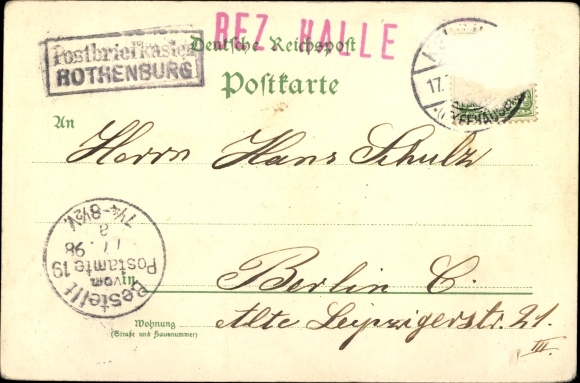 BEZ. HALLE
Postbriefkasten
ROTHENBURG
Deutsche Reichspost
Postkarte
17.
(KYFFHÄUSER)
An
Herrn Hans Schulz
in Berlin C.
Wohnung
(Straße und Hausnummer)
Alte Leipzigerstr. 21.
III.
Bestellt
vom
Postamte 19
98
a
7¼-8½V.